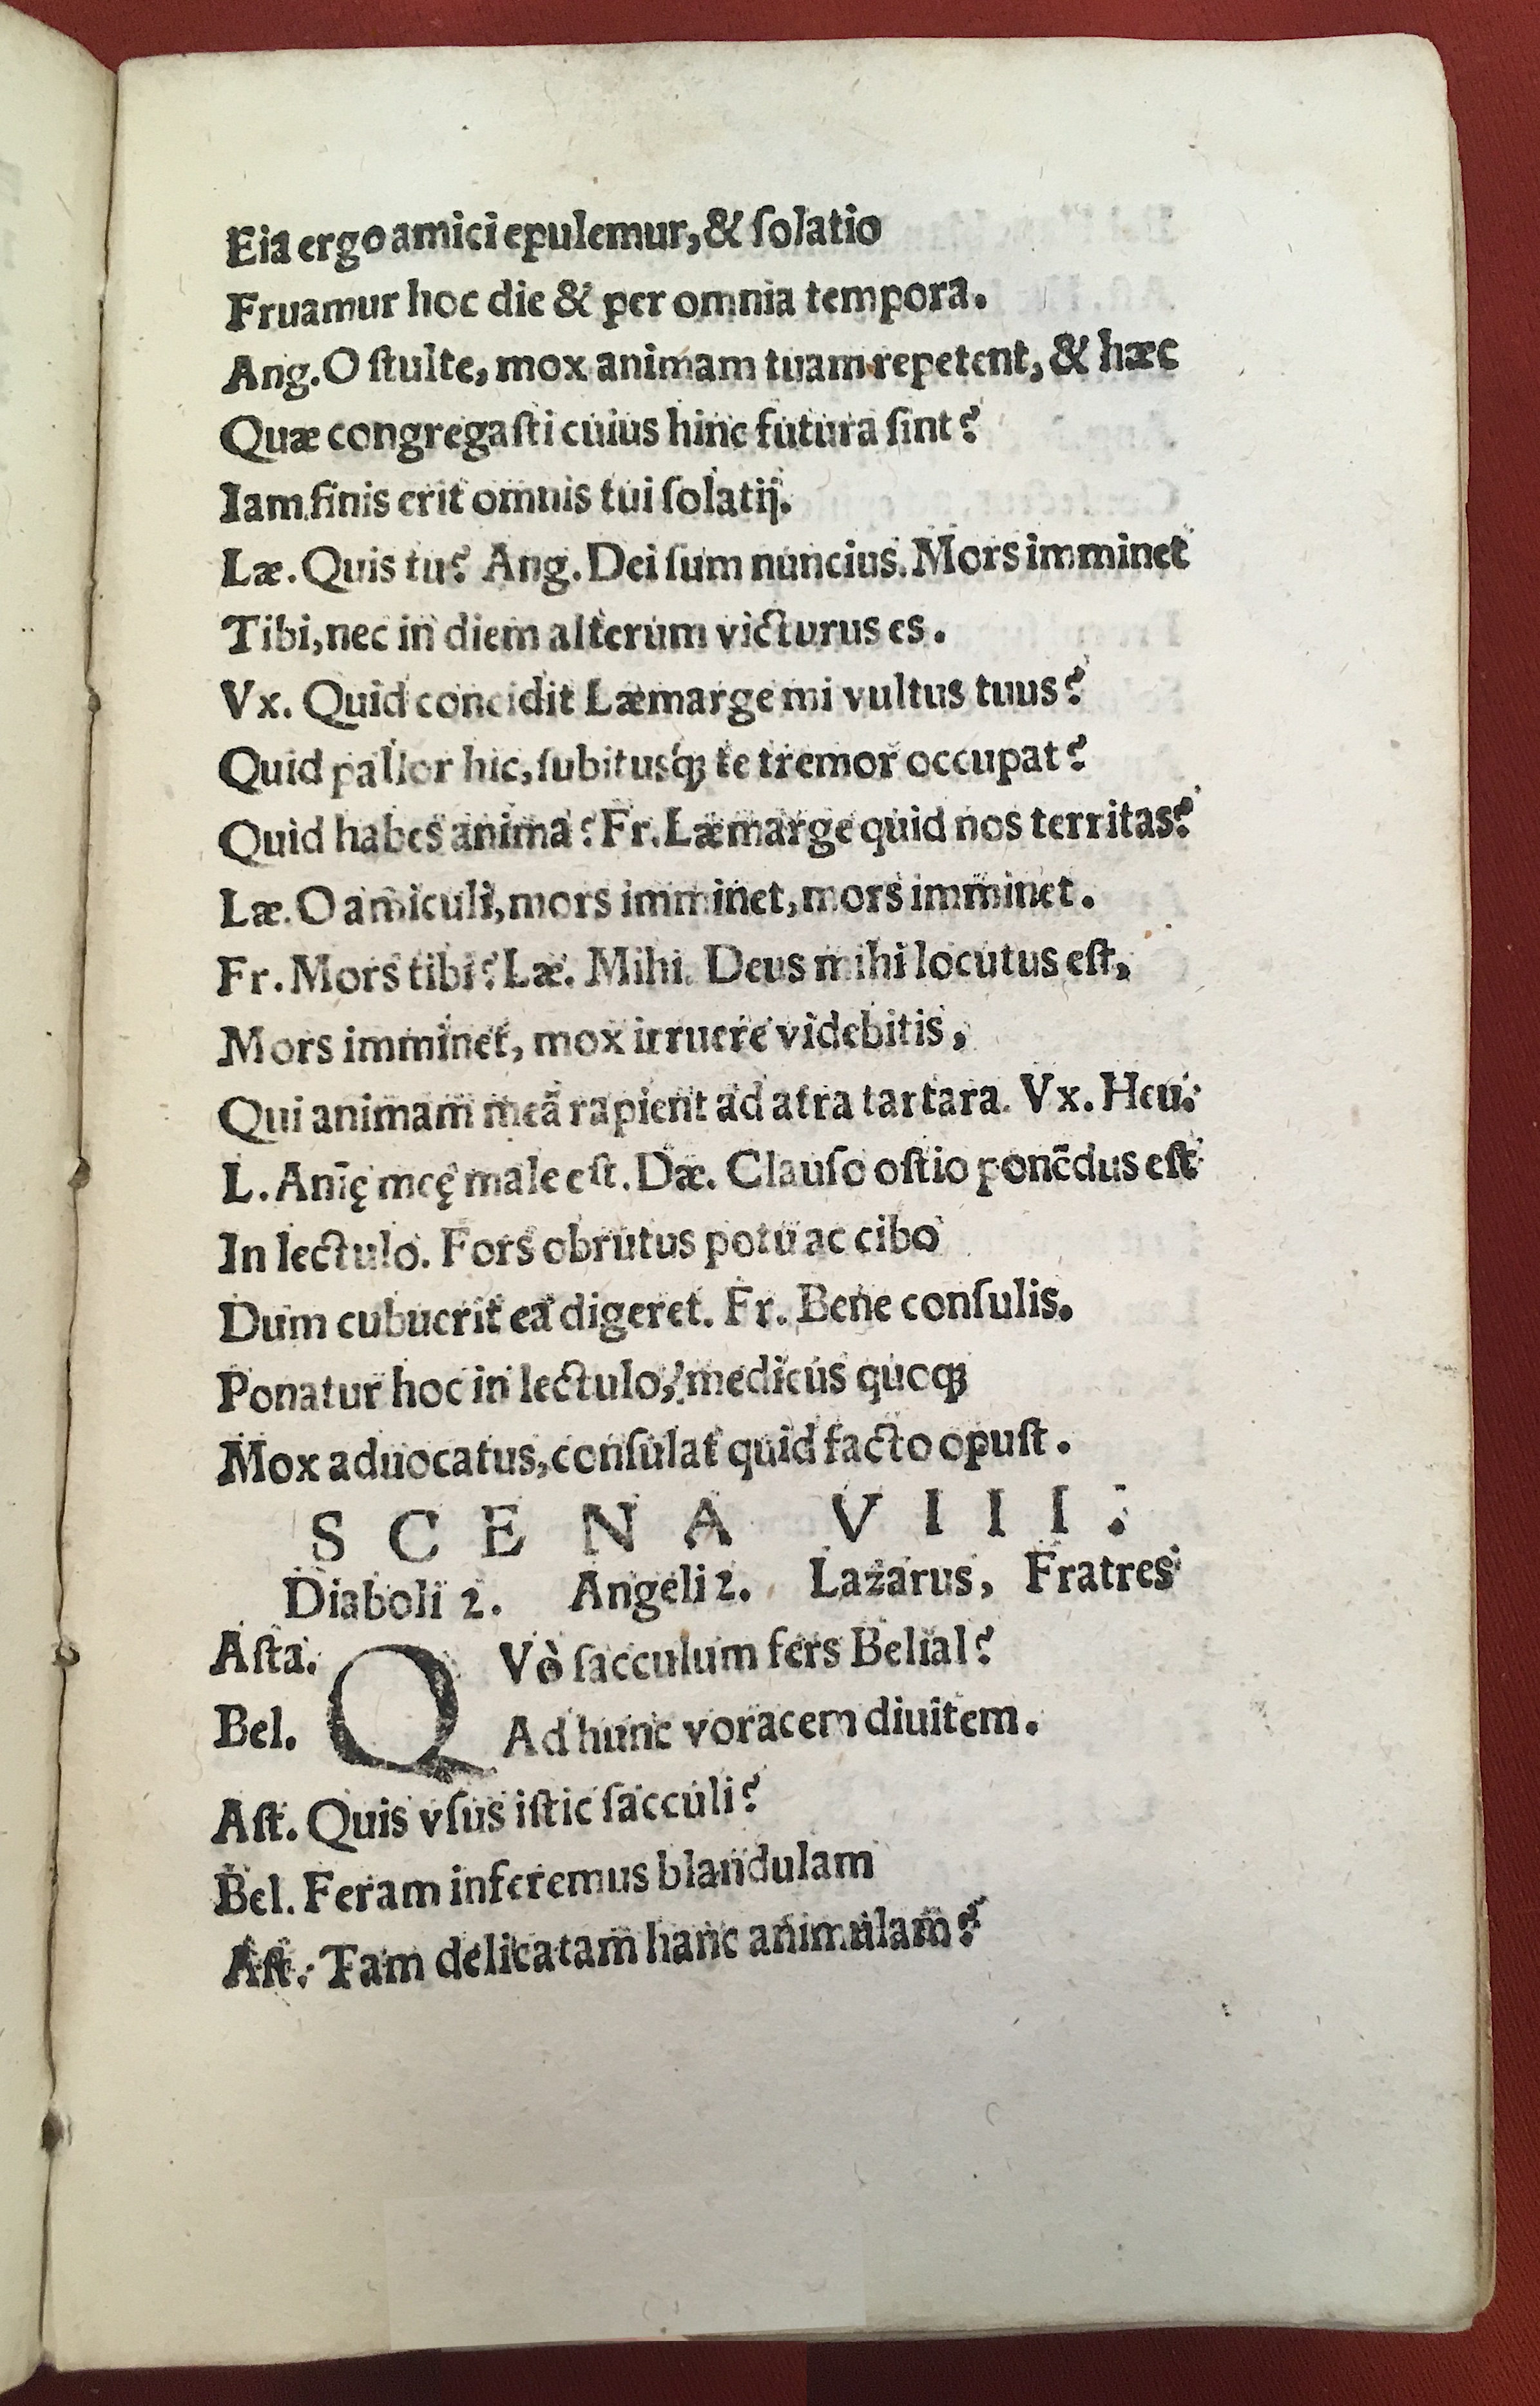 Eia ergo amici epulemur, & ſolatio
Fruamur hoc die & per omnia tempora.
Ang. O ſtulte, mox animam tuam repetent, & hæc
Quæ congregaſti cuius hinc futura ſint?
Iam finis erit omnis tui ſolatij.
Læ. Quis tu? Ang. Dei ſum nuncius. Mors imminet
Tibi, nec in diem alterum victurus es.
Vx. Quid concidit Læmarge mi vultus tuus?
Quid pallor hic, ſubitusq́ꝫ te tremor occupat?
Quid habes anima? Fr. Læmarge quid nos territas?
Læ. O amiculi, mors imminet, mors imminet.
Fr. Mors tibi? Læ. Mihi. Deus mihi locutus eſt,
Mors imminet, mox irruere videbitis,
Qui animam meã rapient ad atra tartara. Vx. Heu.
L. Anīę meę male eſt. Dæ. Clauſo oſtio ponēdus eſt
In lectulo. Fors obrutus potu ac cibo
Dum cubuerit ea digeret. Fr. Bene conſulis.
Ponatur hoc in lectulo, medicus quoqꝫ
Mox aduocatus, conſulat quid facto opuſt.
SCENA VIII.
Diaboli 2. Angeli 2. Lazarus, Fratres
Aſta. QVò ſacculum fers Belial?
Bel. Ad hunc voracem diuitem.
Aſt. Quis vſus iſtic ſacculi?
Bel. Feram inferemus blandulam
Aſt. Tam delicatam hanc animulam?